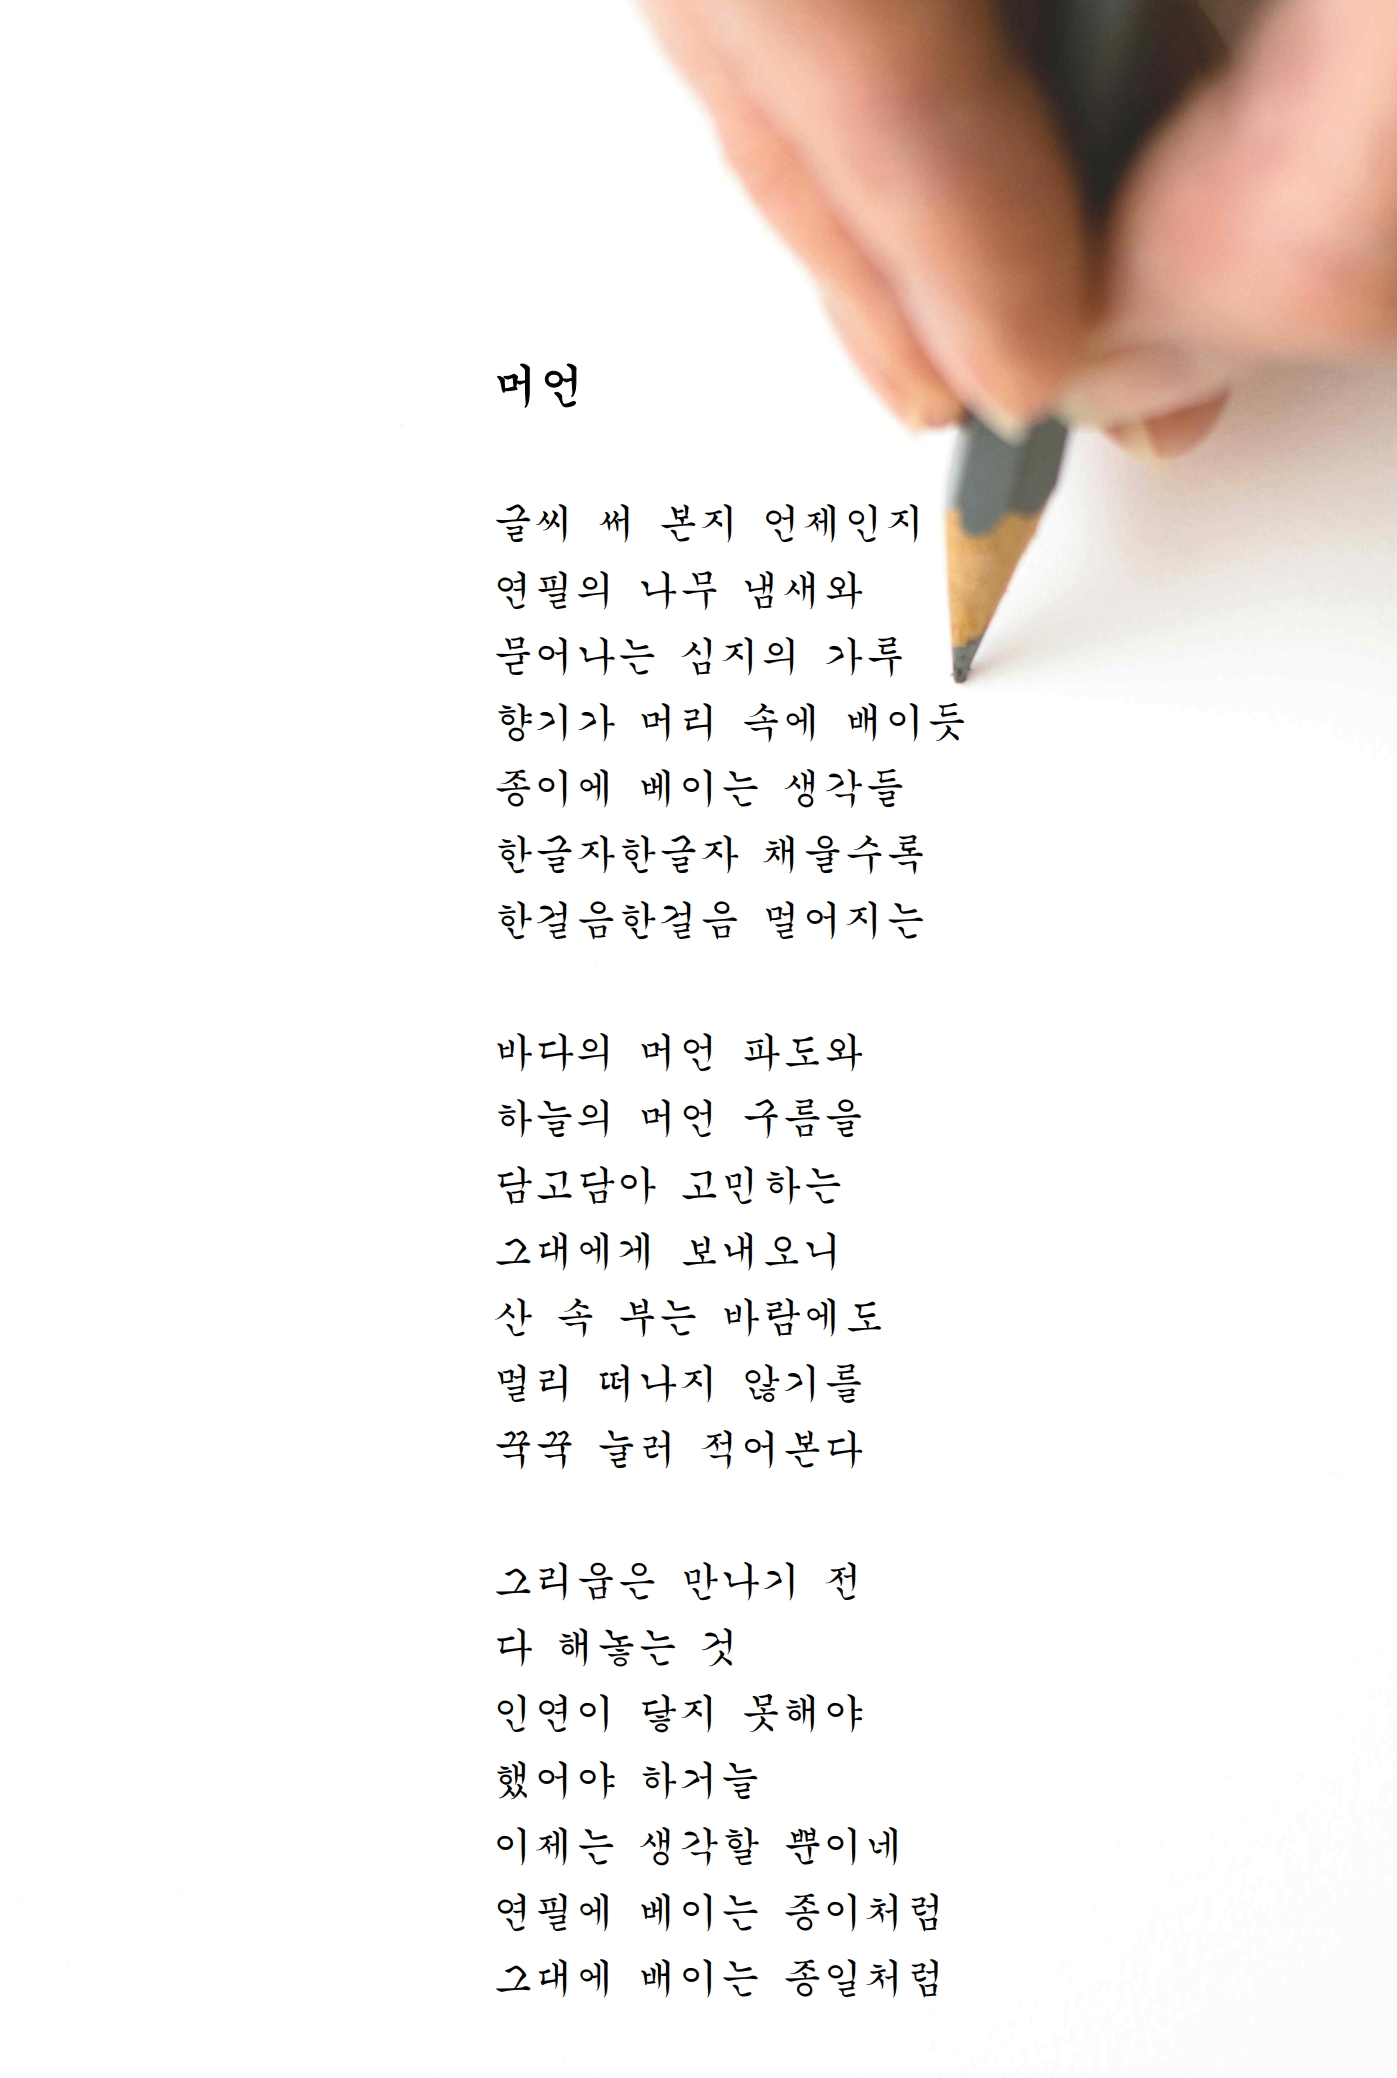 머언
글씨 써 본지 언제인지
연필의 나무 냄새와
묻어나는 심지의 가루
향기가 머리 속에 배이듯
종이에 베이는 생각들
한글자한글자 채울수록
한걸음한걸음 멀어지는
바다의 머언 파도와
하늘의 머언 구름을
담고담아 고민하는
그대에게 보내오니
산 속 부는 바람에도
멀리 떠나지 않기를
꾹꾹 눌러 적어본다
그리움은 만나기 전
다 해놓는 것
인연이 닿지 못해야
했어야 하거늘
이제는 생각할 뿐이네
연필에 베이는 종이처럼
그대에 배이는 종일처럼